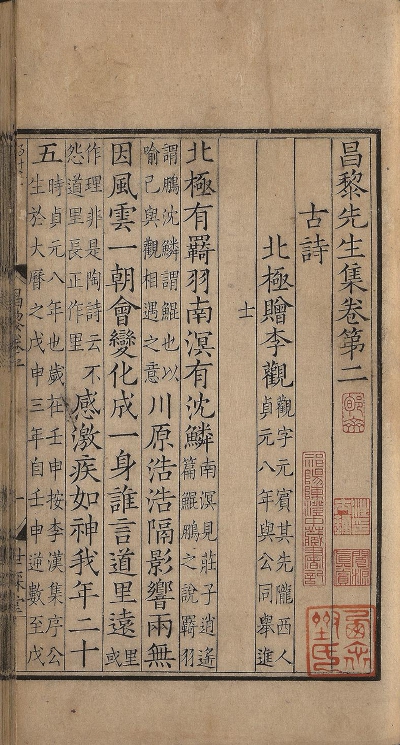 昌黎先生集卷第二
古詩
北極贈李觀觀字元賓其先隴西人
貞元八年與公同舉進
士
北極有羇羽南溟有沈鱗南溟見莊子逍遙
篇鯤鵬之說羇羽
謂鵬沈鱗謂鯤也以
喻己與觀相遇之意川原浩浩隔影響兩無
因風雲一朝會變化成一身誰言道里遠里或
作理非是陶詩云不
怨道里長正作里感激疾如神我年二十
五時貞元八年也歲在壬申按李漢集序公
生於大曆之戊申三年自壬申逆數至戊
祁陽陳澄中藏書記